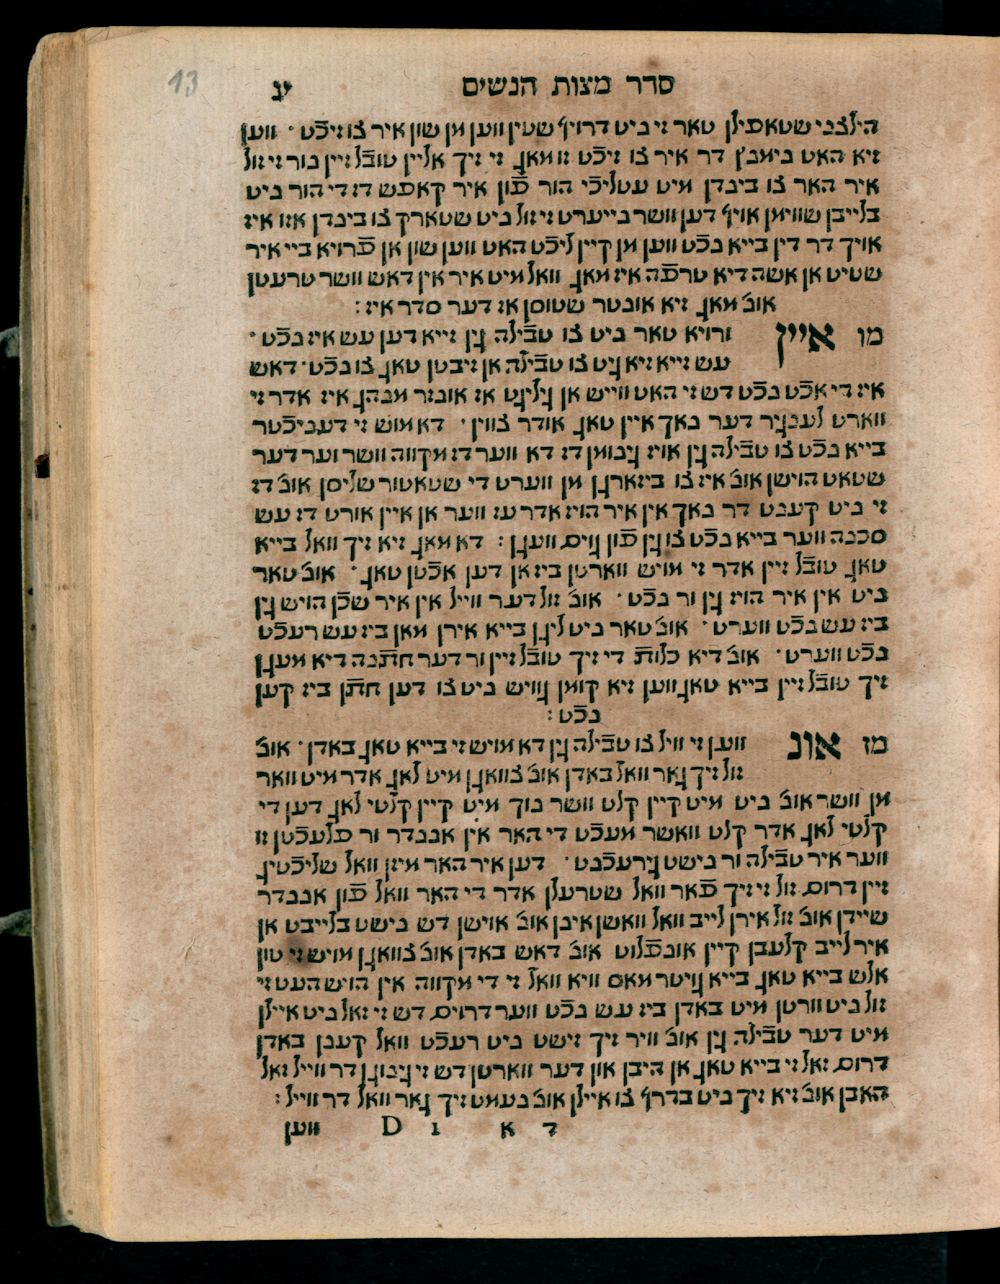 13
סדר מצות הנשים יג
הילצני שטאפילן טאר זי ניט דרויף שטין ווען מן שון איר צו זיכֿט ׃ ווען
זיא האט נימנץ דר איר צו זיכֿט זו מאג זי זיך אליין טובֿל זיין נור זי זול
איר האר צו בינדן מיט עטליכֿי הור פֿון איר קאפש דז די הור ניט
בלייבן שווימן אויף דען וושר נייערט זי זול ניט שטארק צו בינדן אזו איז
אויך דר דין בייא נכֿט ווען מן קיין ליכֿט האט ווען שון אן פֿרויא בייא איר
שטיט אן אשה דיא טרפֿה איז מאג וואל מיט איר אין דאש וושר טרעטן
אונ' מאג זיא אונטר שטוסן אז דער סדר איז :
מו איין ורויא טאר ניט צו טבֿילה גין זייא דען עש איז נכֿט ׃
עש זייא זיא גיט צו טבֿילה אן זיבטן טאג צו נכֿט ׃ דאש
איז די אכֿט נכֿט דש זי האט ווייש אן גילינט אז אונזר מנהג איז אדר זי
ווארט לענגיר דער נאך איין טאג אודר צווין ׃ דא מוש זי דענ‬יכֿטר
בייא נכֿט צו טבֿילה גין אויז גינומן דז דא ווער דז מקווה וושר וער דער
שטאט הוישן אונ' איז צו ביזארגן מן ווערט די שטאטור שליסן אונ' דז
זי ניט קענט דר נאך אין איר הויז אדר עז ווער אן איין אורט דז עש
סכנה ווער בייא נכֿט צו גין פֿון גויס וועגן : דא מאג זיא זיך וואל בייא
טאג טובֿל זיין אדר זי מויש ווארטן ביז אן דען אכֿטן טאג ׃ אונ' טאר
ניט אין איר הויז גין ור נכֿט ׃ אונ' זול דער ווייל אין איר שכֿן הויש גין
ביז עש נכֿט ווערט ׃ אונ' טאר ניט ליגן בייא אירן מאן ביז עש רעכֿט
נכֿט ווערט ׃ אונ' דיא כלותֿ די זיך טובֿל זיין ור דער חתֿנה דיא מעגן
זיך טובֿל זיין בייא טאג ווען זיא קומן גוויש ניט צו דען חתֿן ביז קען
נכֿט :
מז אונ ווען זי וויל צו טבֿילה גין דא מויש זי בייא טאג באדן ׃ אונ'
זול זיך גאר וואל באדן אונ' צוואגן מיט לאג אדר מיט וואר
מן וושר אונ' ניט מיט קיין קלט וושר נוך מיט קיין קלטי לאג דען די
קלטי לאג אדר קלט וואשר מעכֿט די האר אין אננדר ור פלעכֿטן זו
ווער איר טבֿילה ור נישט גירעכֿנט ׃ דען איר האר מיזן וואל שליכֿטיג
זיין דרום זול זי זיך פֿאר וואל שטרעלן אדר די האר וואל פֿון אננדר
שיידן אונ' זול אירן לייב וואל וואשן אינן אונ' אוישן דש נישט בלייבט אן
איר לייב קלעבן קיין אונפֿלוט אונ' דאש באדן אונ' צוואגן מויש זי טון
אלש בייא טאג בייא גויטר מאס וויא וואל זי די מקווה אין הויש העט זי
זול ניט וורטן מיט באדן ביז עש נכֿט ווער דרוים דש זי זאל ניט איילן
מיט דער טבֿילה גין אונ' וויר זיך זישט ניט רעכֿט וואל קענן באדן
דרום זאל זי בייא טאג אן היבן און דער ווארטן דש זי גינוגן דר ווייל זאל
האבן אונ' זיא זיך ניט בדרף צו איילן אונ' נעמט זיך גאר וואל דר ווייל :
ד א ו D ווען